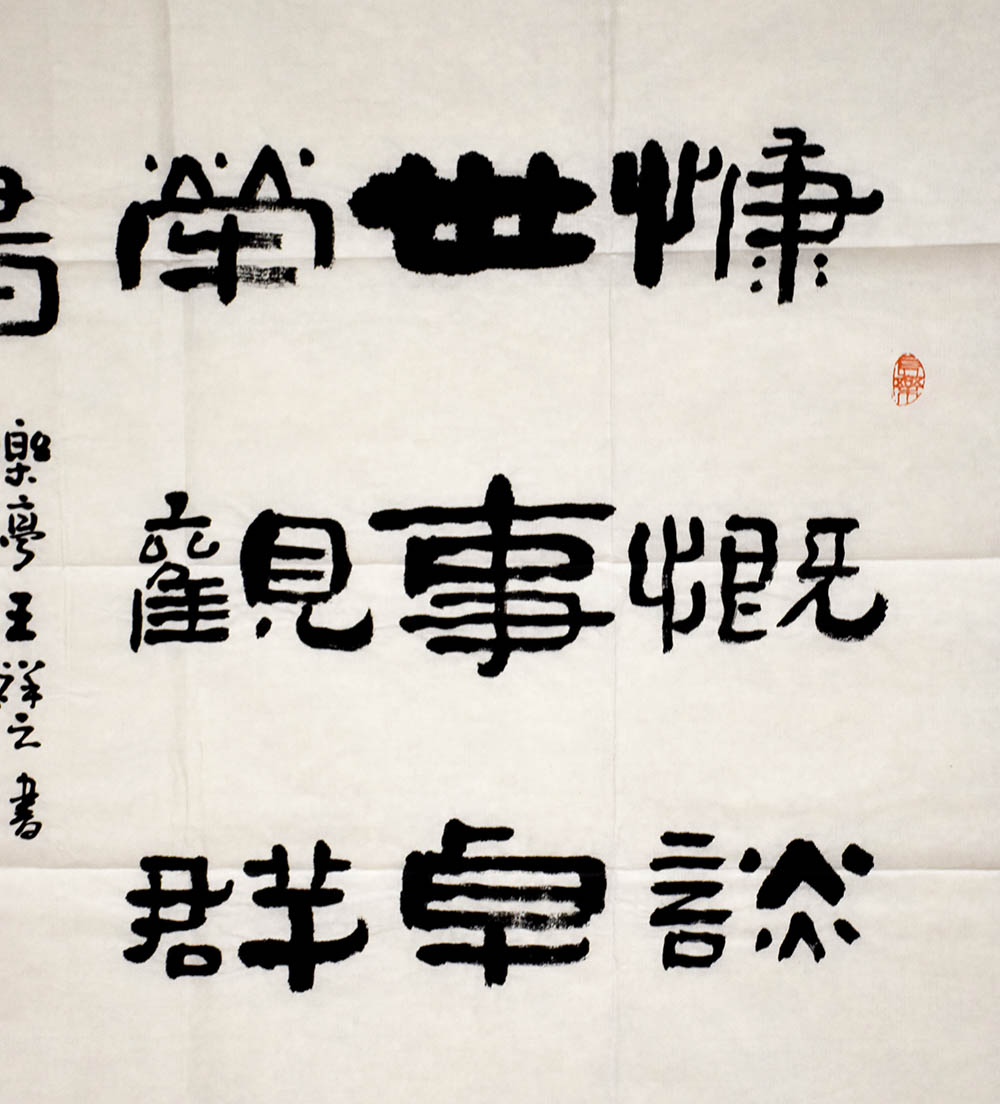 慷慨談
世事卓
犖觀群
書
樂亭王祥之書